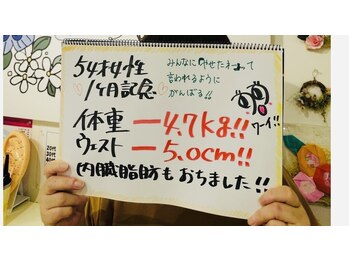 54才女性
1ヶ月記念
みんなにやせたネって
言われるように
がんばる!!
体重 -4.7kg!!
ワーイ!!
ウェスト -5.0cm!!
内臓脂肪もおちました!!